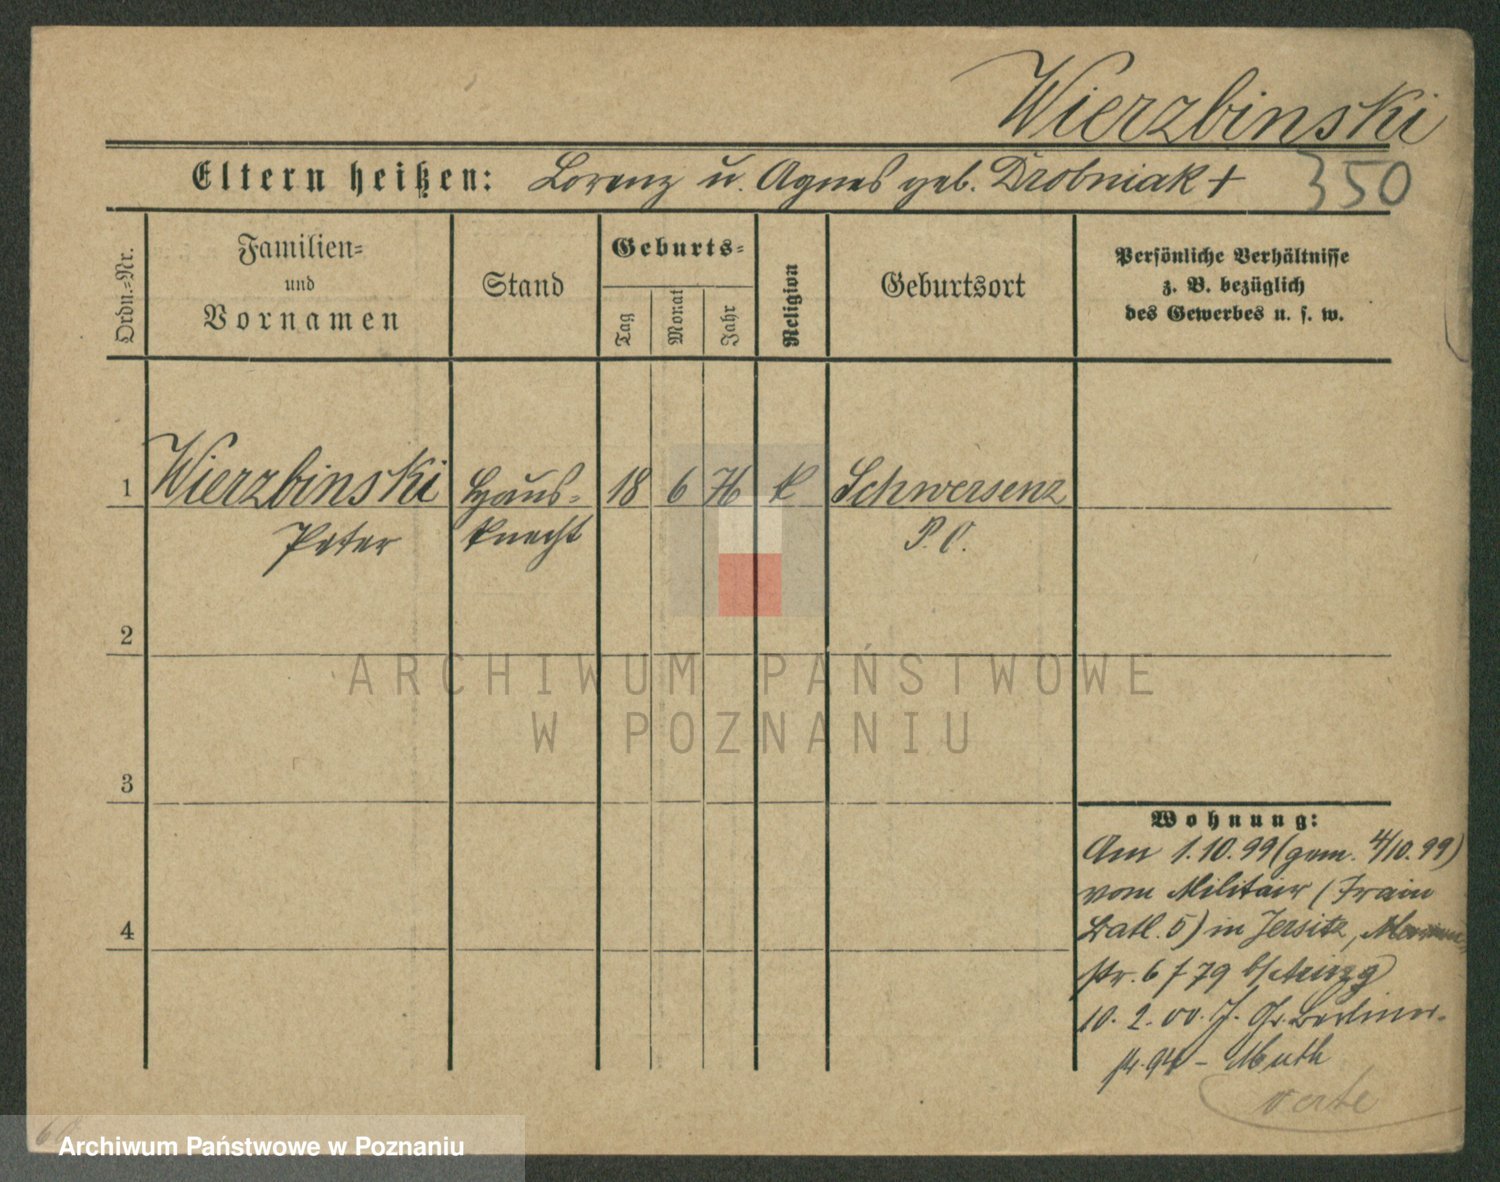 Wierzbinski
Eltern heißen: Lorenz u. Agnes geb. Drobniak +
350
Ordn.-Nr.
Familien-
und
Vornamen
Stand
Geburts-
Tag
Monat
Jahr
Religion
Geburtsort
Persönliche Verhältnisse
z. B. bezüglich
des Gewerbes u. s. w.
1 Wierzbinski Haus- 18 6 76 k Schwersenz
Peter knecht P. O.
2
3
4
Wohnung:
Am 1.10.99 (gem. 4/10.99)
vom Militair (Train
Batl. 5) in Jersitz,
str. 6 f 79
10. 2. 00. J. Gr. Berliner-
str. 94 - Muth
verte
ARCHIWUM PAŃSTWOWE
W POZNANIU
Archiwum Państwowe w Poznaniu